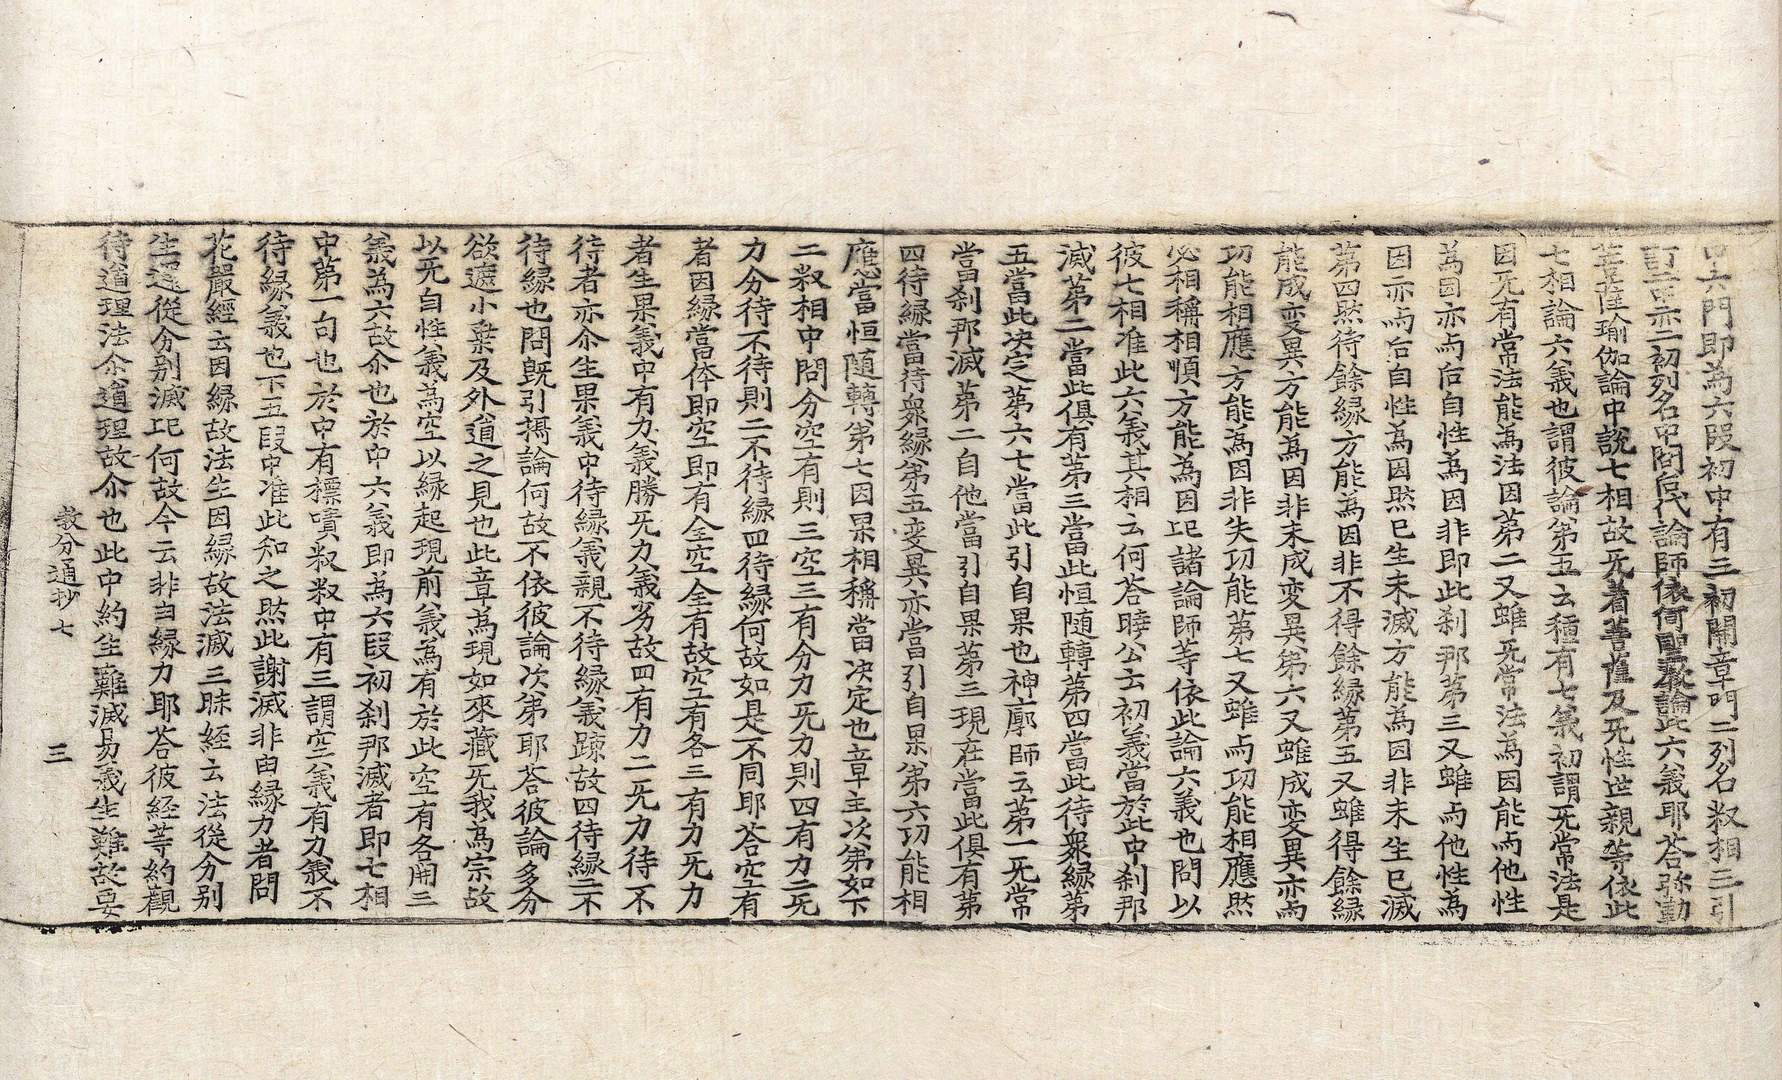 中六門即為六段初中有三初開章門二列名叔相三引
說七相故无著菩薩及无性世親等依此
七相論六義也謂彼論第五云種有七義初謂无常法是
因无有常法能為法因第二又雖无常法為因能与他性
為因亦与后自性為因非即此刹那第三又雖与他性為
因亦与后自性為因然已生未滅方能為因非未生已滅
第四然待餘縁方能為因非不得餘縁第五又雖得餘縁
能成变異方能為因非未成变異第六又雖成变異亦与
功能相應方能為因非失功能第七又雖与功能相應然
必相稱相順方能為因此諸論師等依此論六義也問以
彼七相准此六義其相云何荅曉公云初義當於此中刹那
滅第二當此俱有第三當此恒随轉第四當此待衆縁第
五當此决定第六七當此引自果也神廓師云第一无常
當刹那滅第二自他當引自果第三現在當此俱有第
四待縁當待衆縁第五变異亦當引自果第六功能相
應當恒随轉第七因果相稱當决定也章主次第如下
二叔相中問分空有則三空三有分力无力則四有力二无
力分待不待則二不待縁四待縁何故如是不同耶荅空有
者因縁當体即空即有全空全有故空有各三有力无力
者生果義中有力義勝无力義劣故四有力二无力待不
待者亦尒生果義中待縁義親不待縁義踈故四待縁二不
待縁也問旣引攝論何故不依彼論次第耶荅彼論多分
欲遮小乗及外道之見也此章為現如來藏无我為宗故
以无自性義為空以縁起現前義為有於此空有各開三
義為六故尒也於中六義即為六段初刹那滅者即七相
中第一句也於中有標嘖叔叔中有三謂空義有力義不
待縁義也下五段中准此知之然此謝滅非由縁力者問
花嚴經云因縁故法生因縁故法滅三昧経云法從分别
生還從分别滅此何故今云非由縁力耶荅彼経等約觀
待道理法尒道理故尒也此中約生難滅易義生難故要
教分通抄七
三